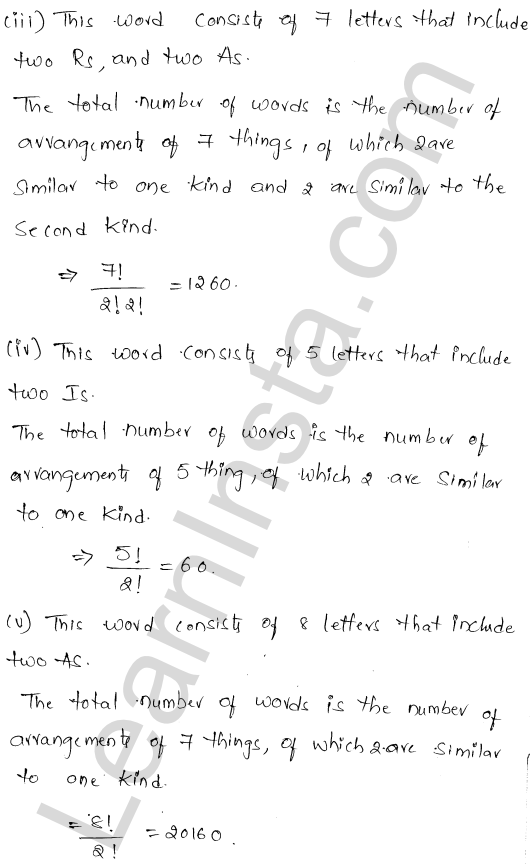 (iii) This word consists of 7 letters that include
two Rs, and two As.
The total number of words is the number of
arrangements of 7 things, of which 2 are
Similar to one kind and 2 are similar to the
Second kind.
⇒ 7! / 2! 2! = 1260.
(iv) This word consists of 5 letters that include
two Is.
The total number of words is the number of
arrangements of 5 thing, of which 2 are similar
to one kind.
⇒ 5! / 2! = 60.
(v) This word consists of 8 letters that include
two As.
The total number of words is the number of
arrangements of 7 things, of which 2 are similar
to one kind.
= 8! / 2! = 20160.
LearnInsta.com